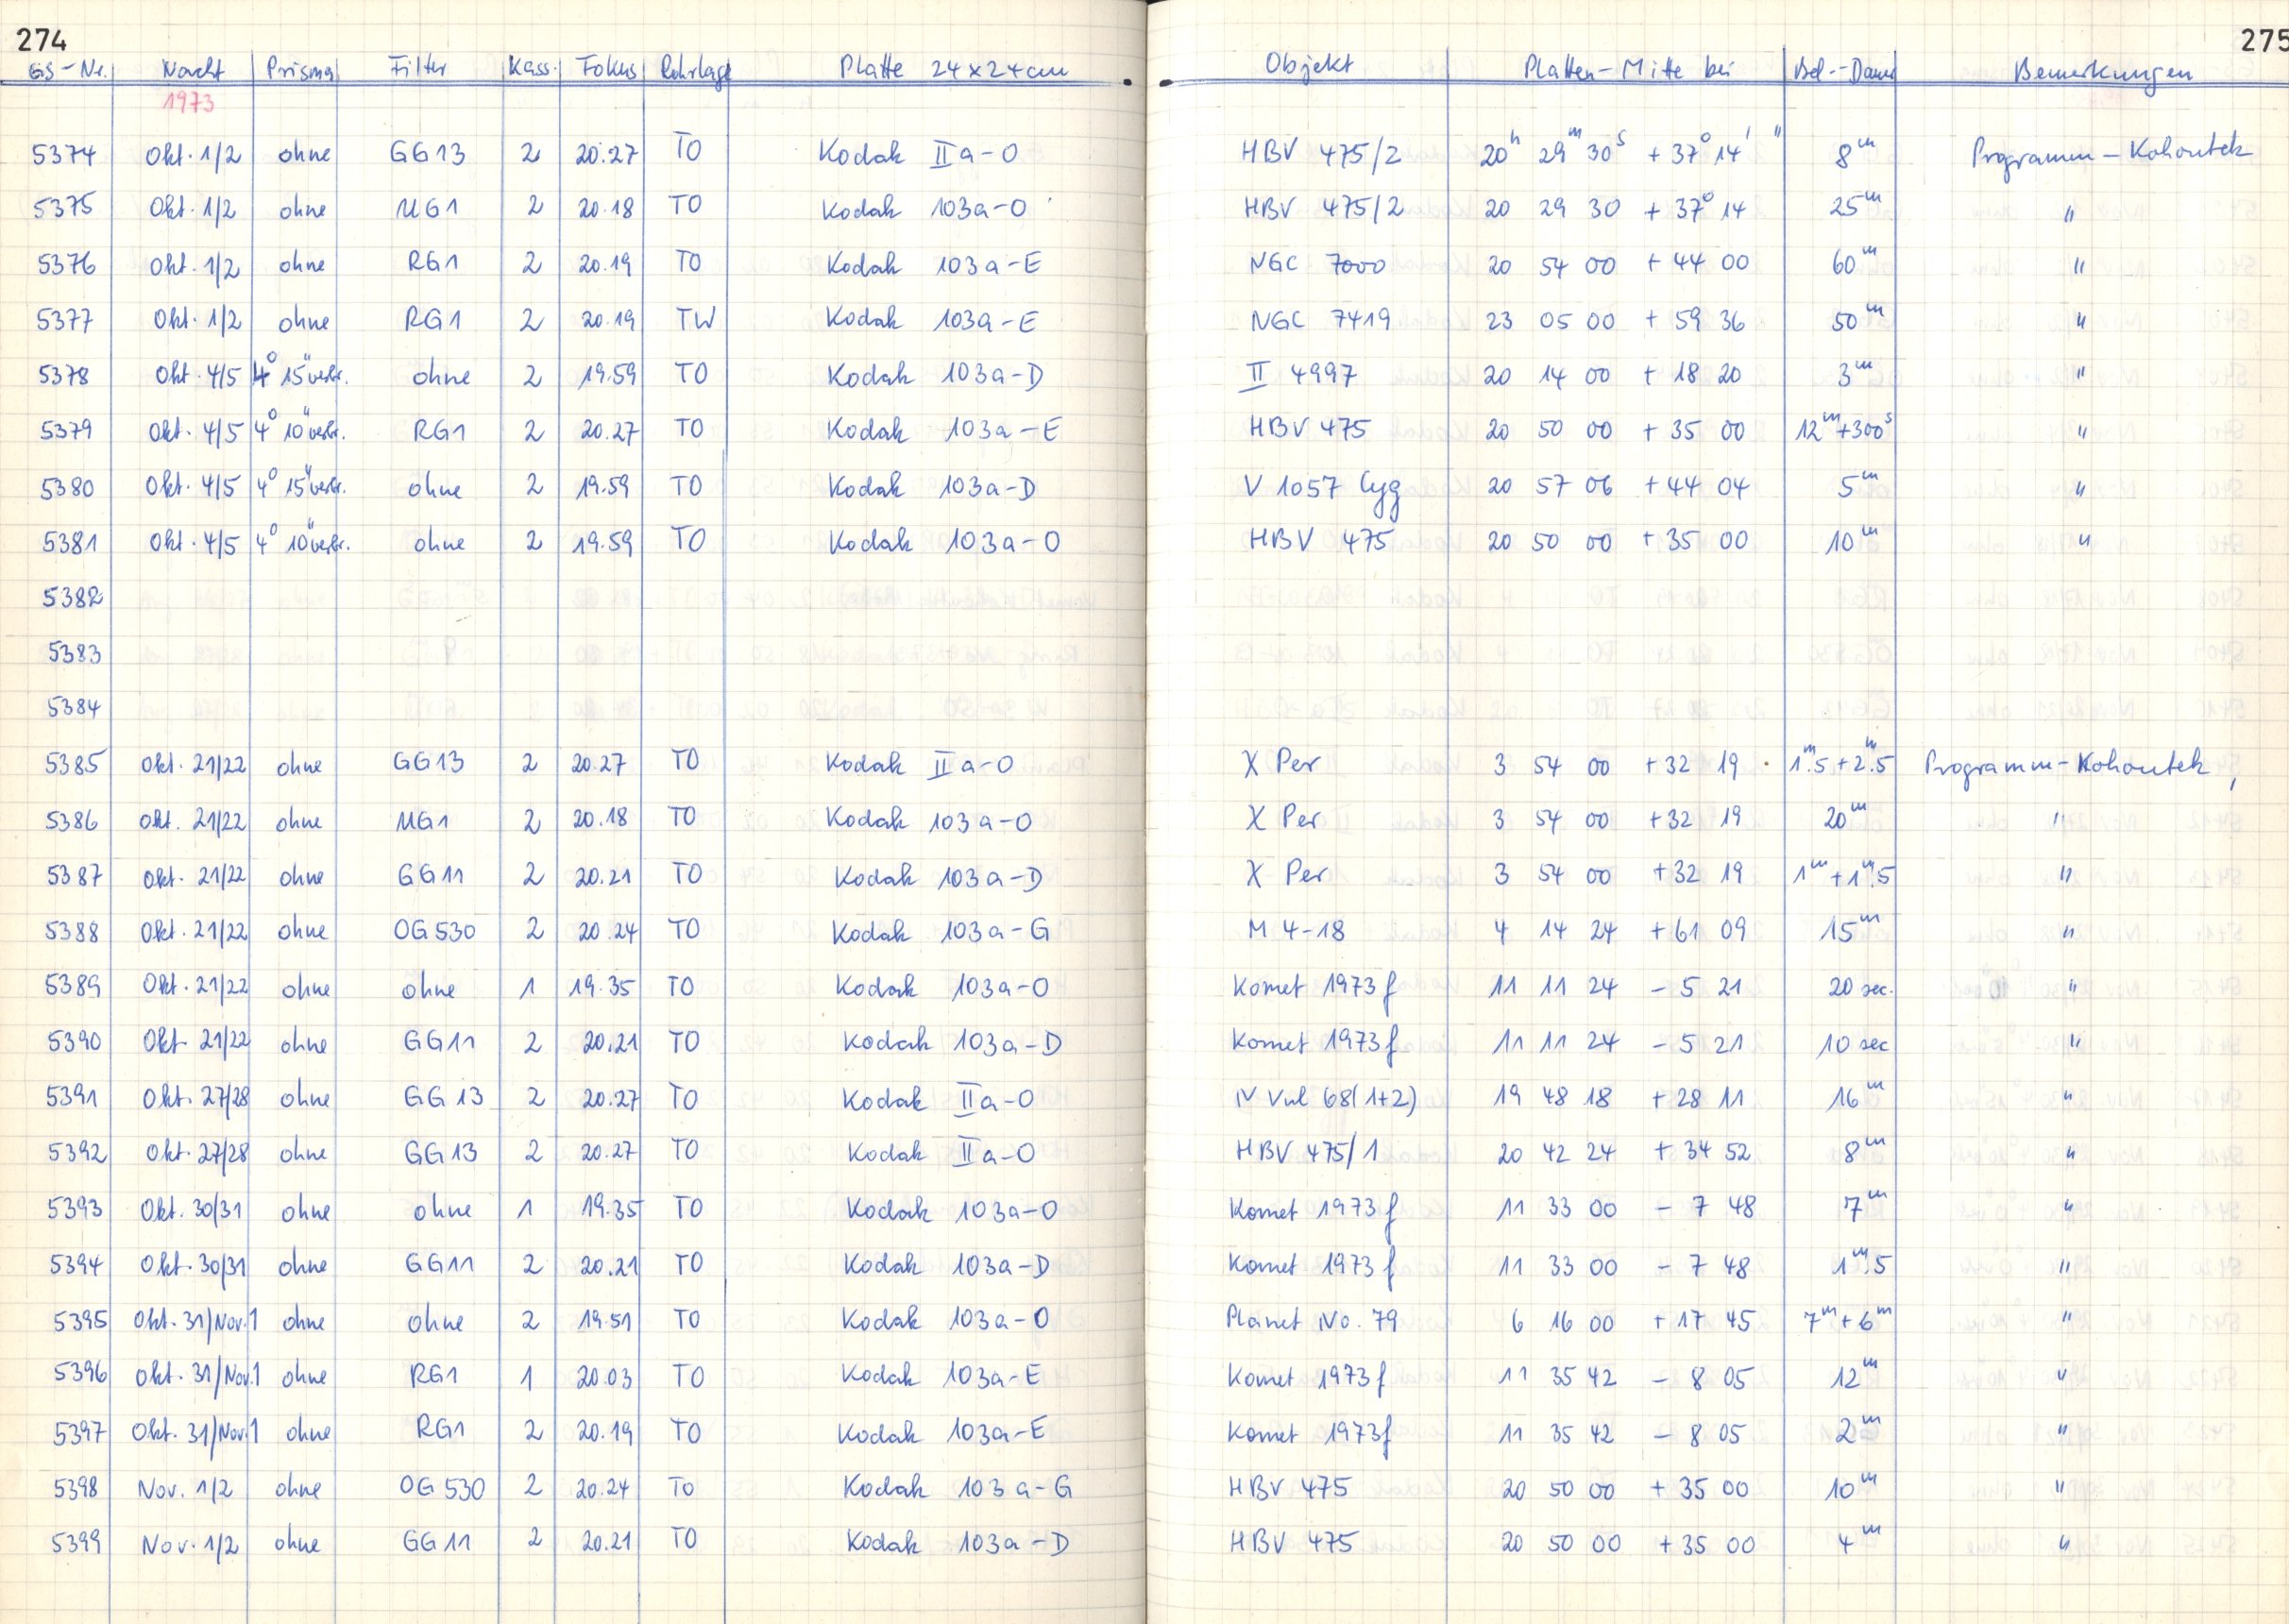 274 275
GS-Nr. Nacht Prisma Filter Kass. Fokus Rohrlage Platte 24x24cm Objekt Platten-Mitte bei Bel.-Dauer Bemerkungen
1973
5374 Okt. 1/2 ohne GG13 2 20.27 TO Kodak IIa-O HBV 475/2 20h 29m 30s +37° 14' " 8m Programm-Kohoutek
5375 Okt. 1/2 ohne UG1 2 20.18 TO Kodak 103a-O HBV 475/2 20 29 30 +37° 14 25m "
5376 Okt. 1/2 ohne RG1 2 20.19 TO Kodak 103a-E NGC 7000 20 54 00 +44 00 60m "
5377 Okt. 1/2 ohne RG1 2 20.19 TW Kodak 103a-E NGC 7419 23 05 00 +59 36 50m "
5378 Okt. 4/5 4° 15" verbr. ohne 2 19.59 TO Kodak 103a-D II 4997 20 14 00 +18 20 3m "
5379 Okt. 4/5 4° 10" verbr. RG1 2 20.27 TO Kodak 103a-E HBV 475 20 50 00 +35 00 12m+300s "
5380 Okt. 4/5 4° 15" verbr. ohne 2 19.59 TO Kodak 103a-D V 1057 Cyg 20 57 06 +44 04 5m "
5381 Okt. 4/5 4° 10" verbr. ohne 2 19.59 TO Kodak 103a-O HBV 475 20 50 00 +35 00 10m "
5382
5383
5384
5385 Okt. 21/22 ohne GG13 2 20.27 TO Kodak IIa-O X Per 3 54 00 +32 19 1m.5+2m.5 Programm-Kohoutek,
5386 Okt. 21/22 ohne UG1 2 20.18 TO Kodak 103a-O X Per 3 54 00 +32 19 20m "
5387 Okt. 21/22 ohne GG11 2 20.21 TO Kodak 103a-D X Per 3 54 00 +32 19 1m+1m.5 "
5388 Okt. 21/22 ohne OG530 2 20.24 TO Kodak 103a-G M 4-18 4 14 24 +61 09 15m "
5389 Okt. 21/22 ohne ohne 1 19.35 TO Kodak 103a-O Komet 1973f 11 11 24 -5 21 20 sec. "
5390 Okt. 21/22 ohne GG11 2 20.21 TO Kodak 103a-D Komet 1973f 11 11 24 -5 21 10 sec "
5391 Okt. 27/28 ohne GG13 2 20.27 TO Kodak IIa-O N Vul 68(1+2) 19 48 18 +28 11 16m "
5392 Okt. 27/28 ohne GG13 2 20.27 TO Kodak IIa-O HBV 475/1 20 42 24 +34 52 8m "
5393 Okt. 30/31 ohne ohne 1 19.35 TO Kodak 103a-O Komet 1973f 11 33 00 -7 48 7m "
5394 Okt. 30/31 ohne GG11 2 20.21 TO Kodak 103a-D Komet 1973f 11 33 00 -7 48 1m.5 "
5395 Okt. 31/Nov. 1 ohne ohne 2 19.51 TO Kodak 103a-O Planet No. 79 6 16 00 +17 45 7m+6m "
5396 Okt. 31/Nov. 1 ohne RG1 1 20.03 TO Kodak 103a-E Komet 1973f 11 35 42 -8 05 12m "
5397 Okt. 31/Nov. 1 ohne RG1 2 20.19 TO Kodak 103a-E Komet 1973f 11 35 42 -8 05 2m "
5398 Nov. 1/2 ohne OG530 2 20.24 TO Kodak 103a-G HBV 475 20 50 00 +35 00 10m "
5399 Nov. 1/2 ohne GG11 2 20.21 TO Kodak 103a-D HBV 475 20 50 00 +35 00 4m "